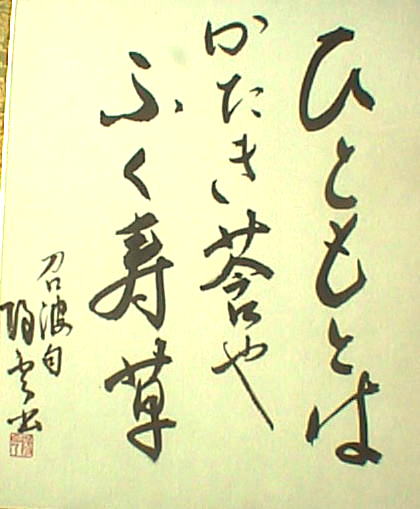 ひともとは
かたき莟や
ふく寿草
召波句
書